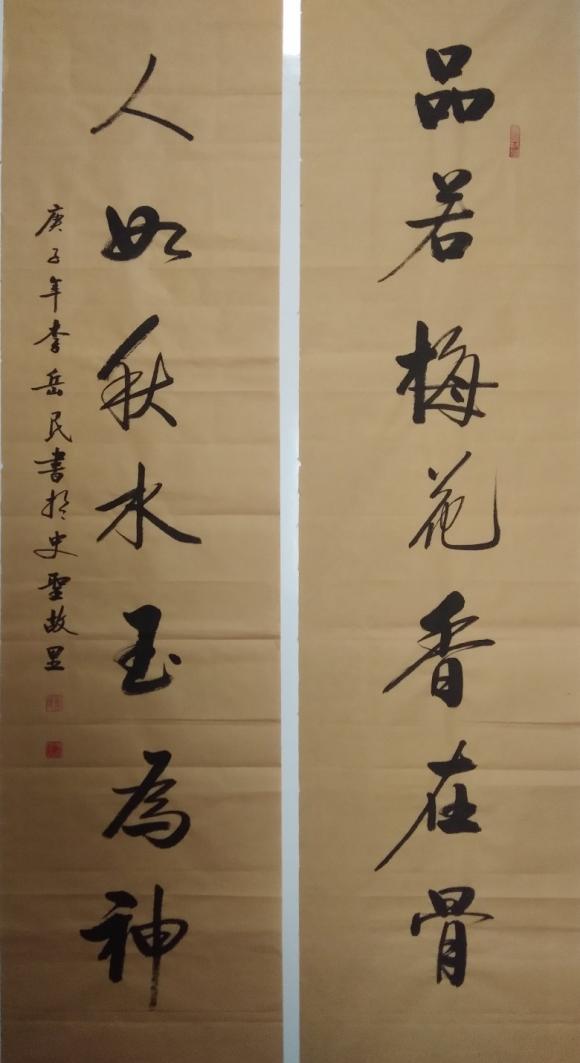 品若梅花香在骨
人如秋水玉为神
庚子年李岳民書於史聖故里